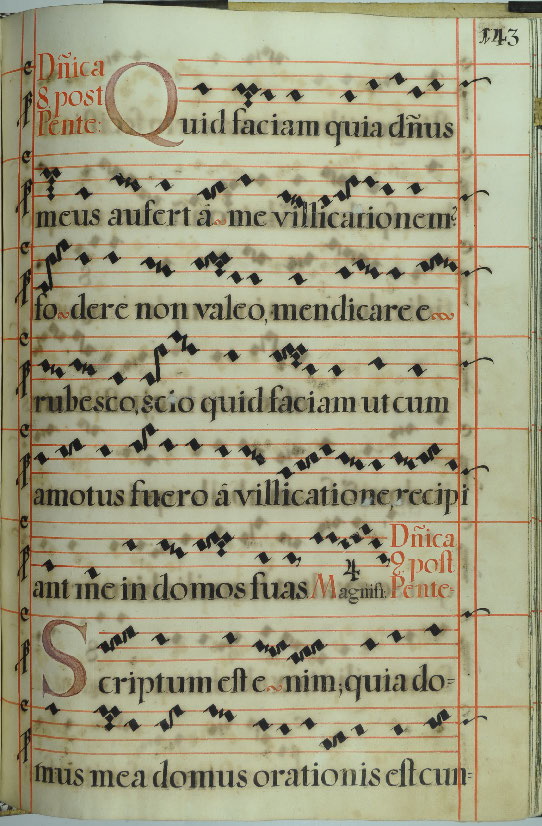 143
Dñica
8. post
Pente:
Quid faciam quia dñus
meus aufert á me villicationem?
fodere non valeo, mendicare e
rubesco, scio quid faciam ut cum
amotus fuero á villicatione, recipi
ant me in domos suas Magnifi: 4
Dñica
9. post
Pente:
Scriptum est enim, quia do=
mus mea domus orationis est cun=